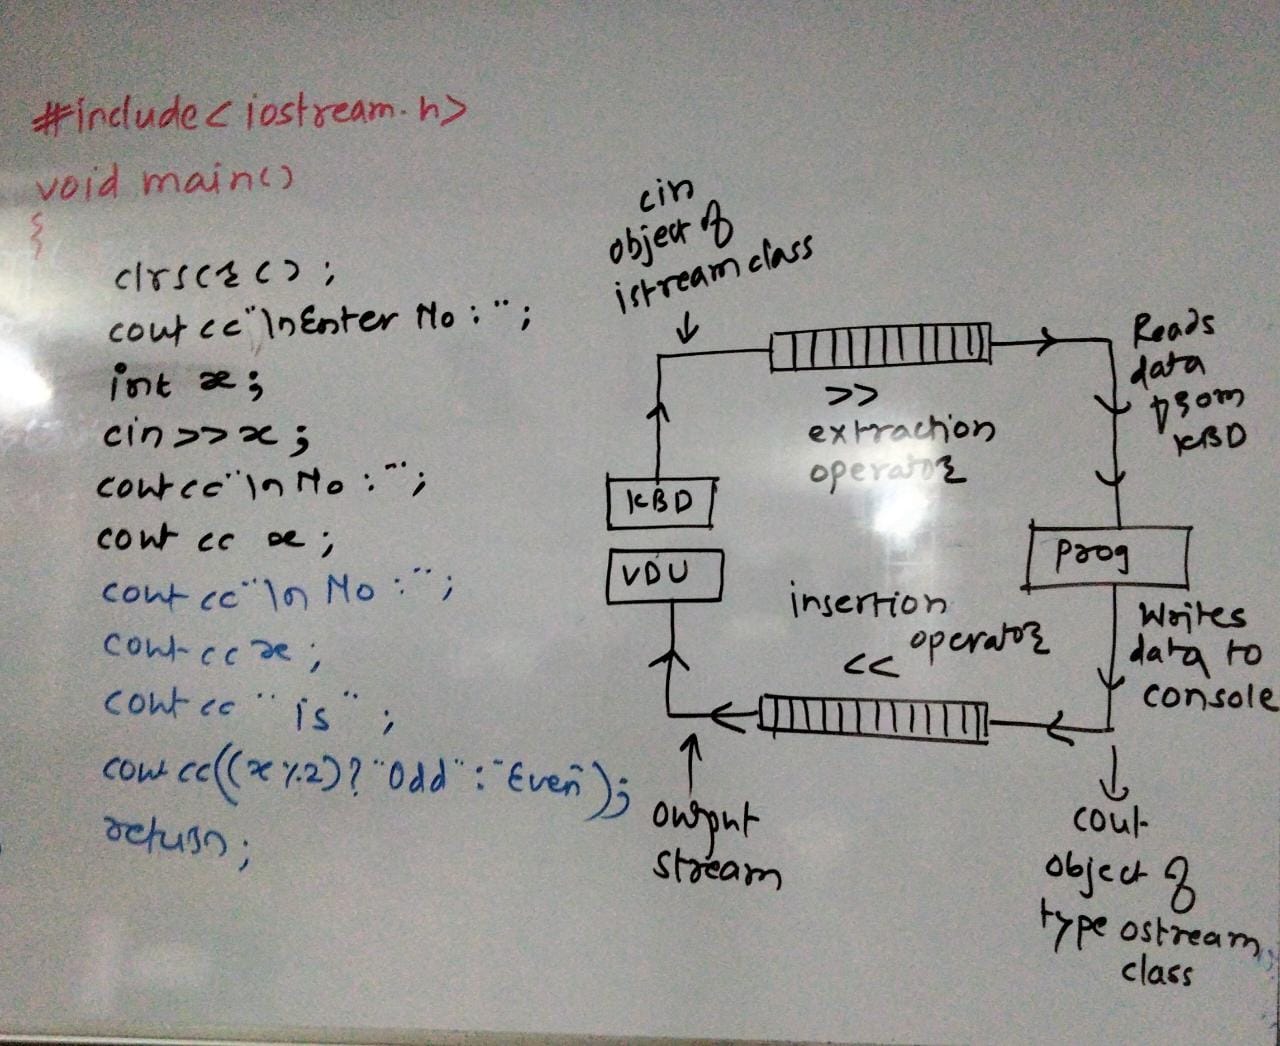 #include<iostream.h>
void main()
{
clrscr();
cout<<"\nEnter No:";
int x;
cin>>x;
cout<<"\n No:";
cout << x;
cout <<"\n No:";
cout << x;
cout << " is ";
cout <<((x%2)?"Odd":"Even");
return;
cin
object of
istream class
>>
extraction
operator
Reads
data
from
KBD
KBD
VDU
Prog
insertion
operator
<<
Writes
data to
console
output
stream
cout
object of
type ostream
class